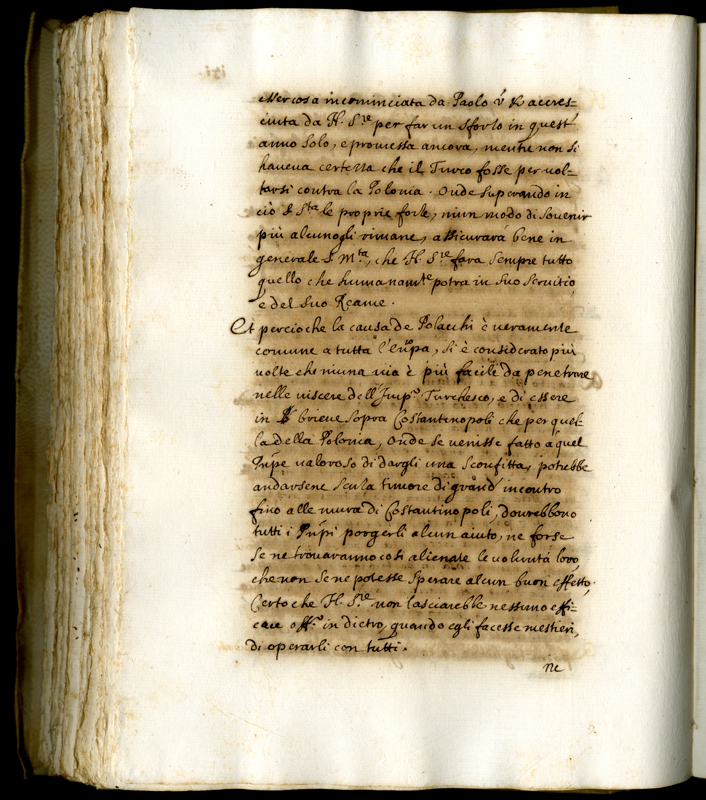 Mercosa incominciata da Paolo V & accres-
ciuta da N. S.re per far un sforzo in quest'
anno solo, e promessa ancora, mentre non si
haveva certezza che il Turco fosse per vol-
tarsi contra la Polonia. Onde superando in
ciò S. S.ta le proprie forze, niun modo di sovenir
più alcunogli rimane, assicurará bene in
generale S. M.ta, che N. S.re fara sempre tutto
quello che humanam.te potra in suo servitio,
e del suo Reame.
Et percioche la causa de Polacchi è veramente
comune a tutta l'Eu.pa, si è considerato più
volte che niuna via è più facile da penetrare
nelle viscere dell'Imp.o Turchesco, e di essere
in brieve sopra Costantinopoli che per quel-
la della Polonia, Onde se venisse fatto a quel
Prn̄pe valoroso di dargli una sconfitta, potrebbe
andarsene senza timore di grand' incontro
fino alle mura di Costantinopoli, dourebbono
tutti i Prn̄pi porgerli alcun aiuto, ne forse
se ne trovaranno così alienate le voluntá loro,
che non se ne potesse sperare alcun buon effetto.
Certo che N. S.re non lasciarebbe nessuno effi-
cace off.o in dietro, quando egli facesse mestieri,
di operarli con tutti.
ne